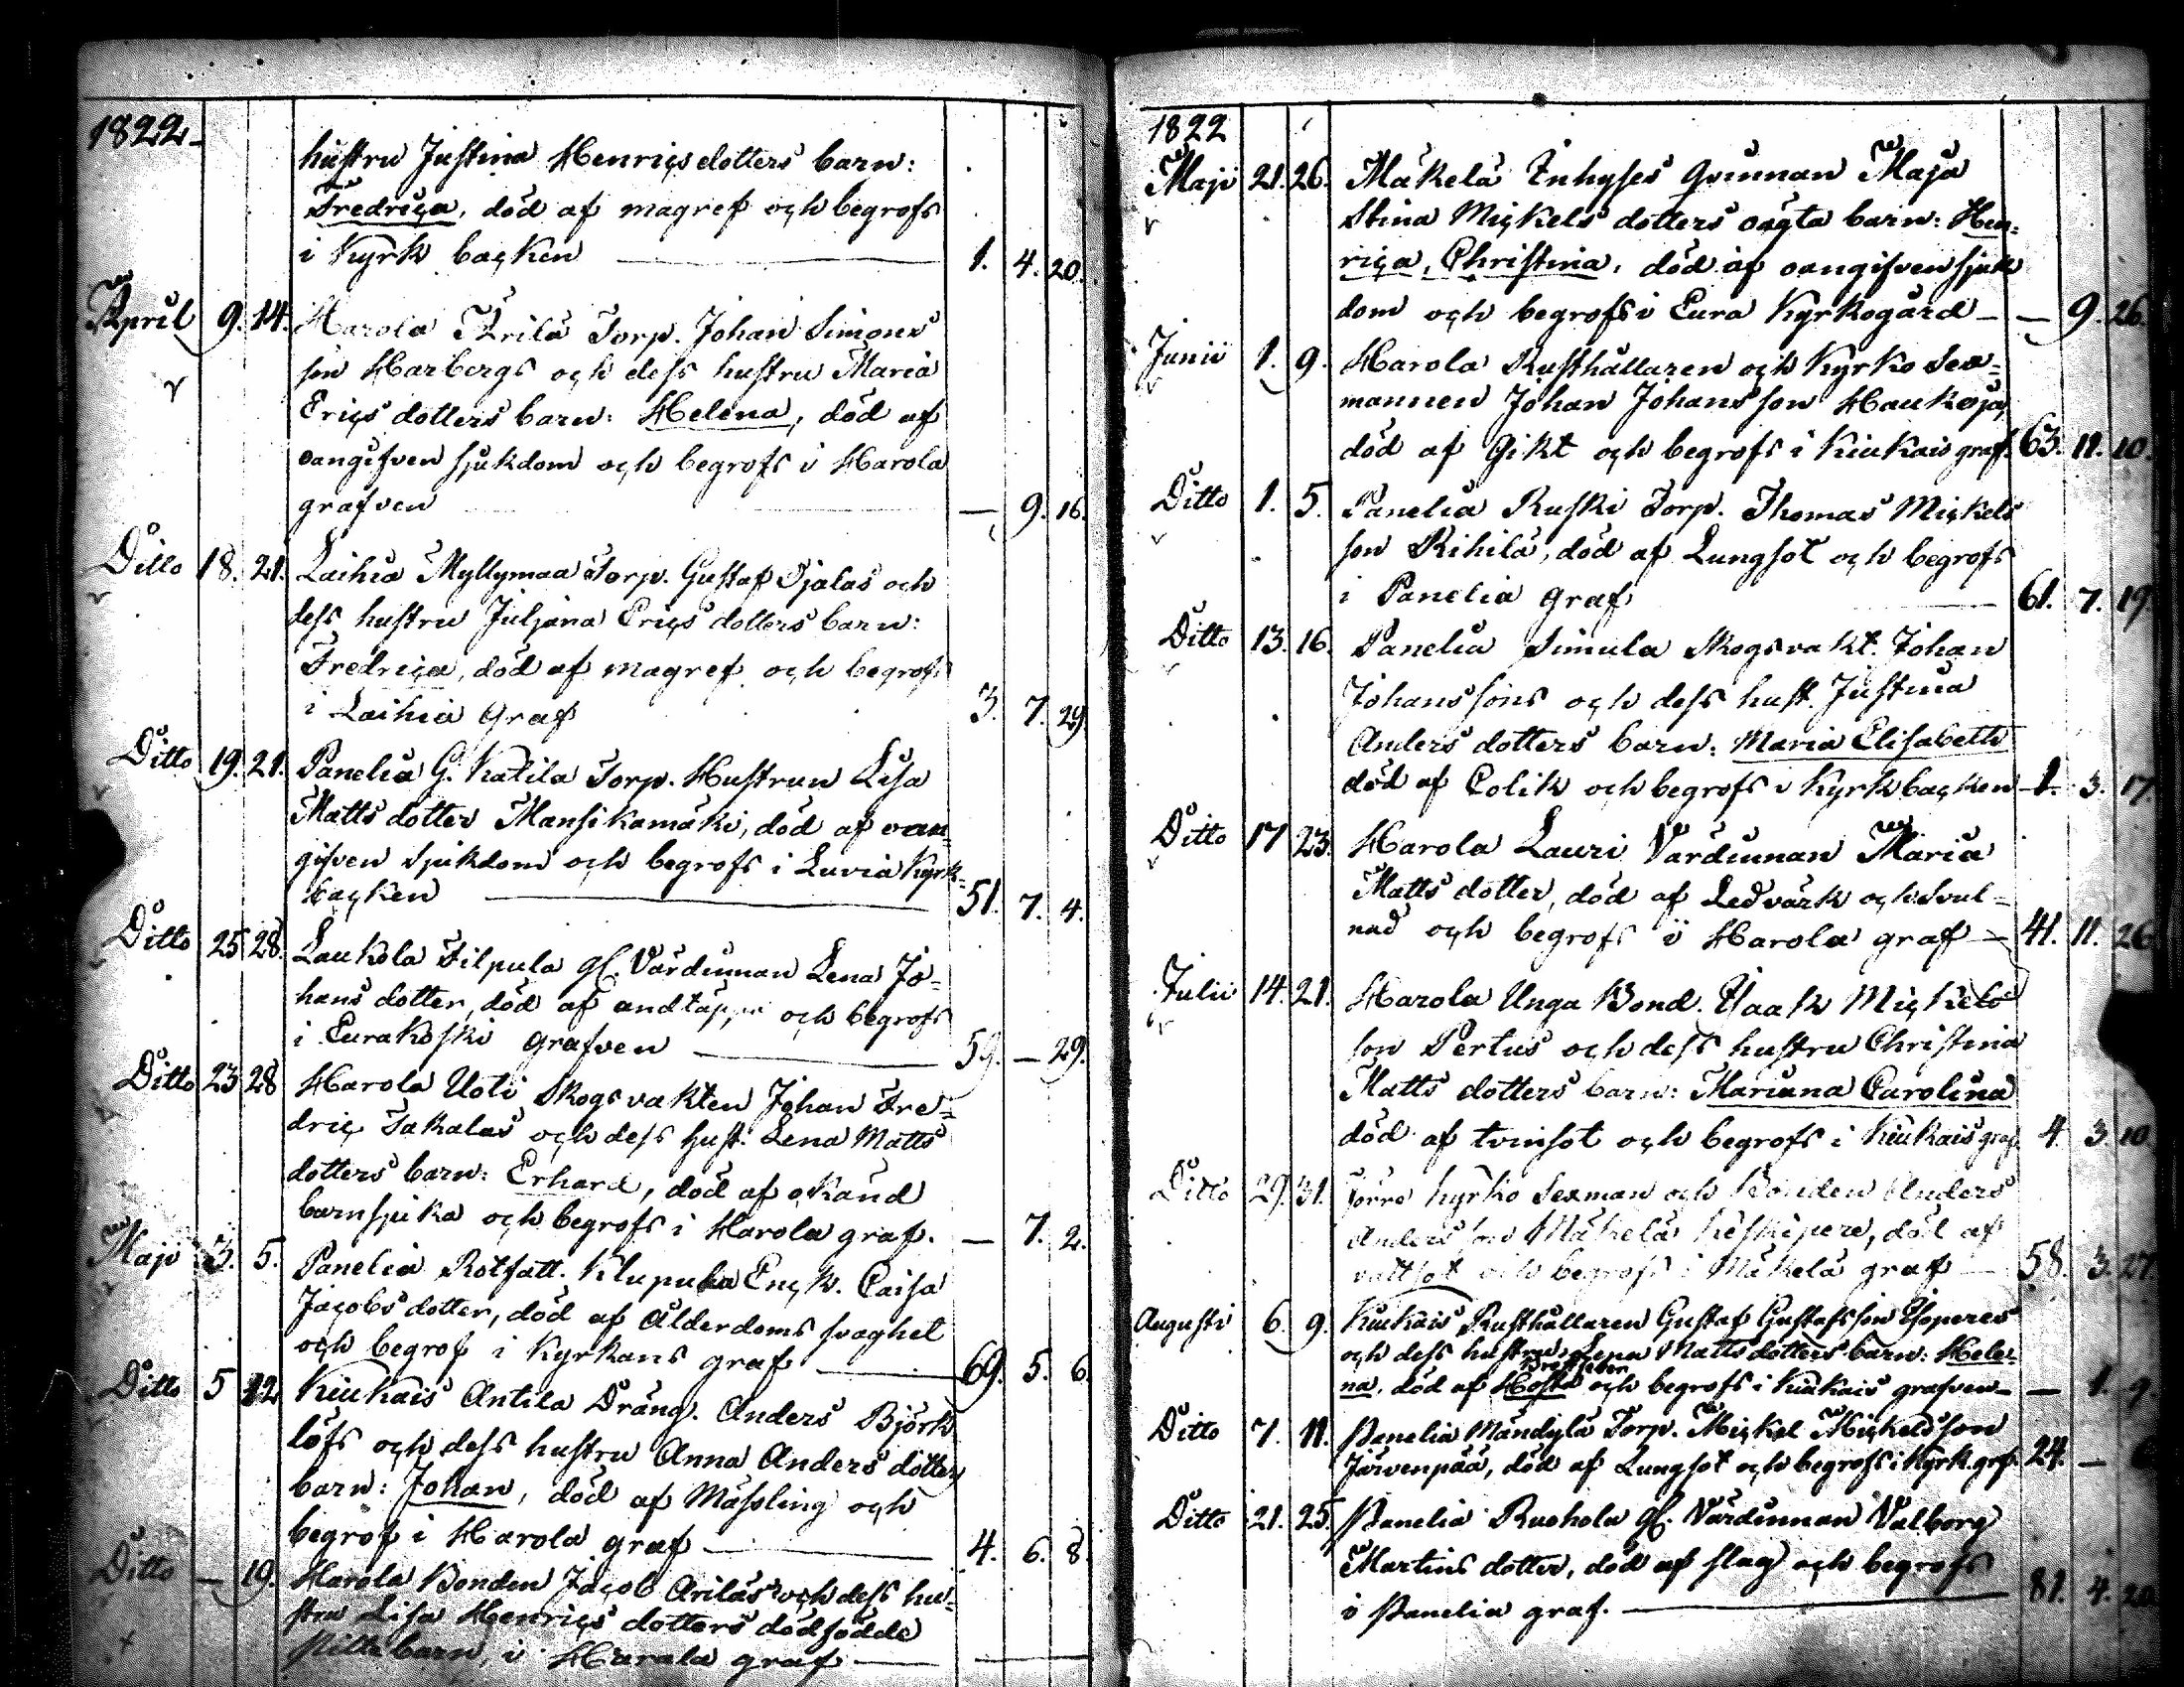 1822
hustru Justina Henriçsdotters barn:
Fredriça, död af magref och begrofs
i Kyrk backen — 1. 4. 20.
April 9. 14. Harola Arila Torp. Johan Simons
son Harbergs och dess hustru Maria
Eriçs dotters barn: Helena, död af
oangifven sjukdom och begrofs i Harola
grafven — 9. 16.
Ditto 18. 21. Laihia Myllymaa Torp. Gustaf Ojalas och
dess hustru Juljana Eriçs dotters barn:
Fredriça, död af magref och begrofs
i Laihia graf 3. 7. 29
Ditto 19. 21. Panelia G. Katila Torp. Hustrun Lisa
Matts dotter Mansikamäki, död af oan-
gifven sjukdom och begrofs i Luvia Kyrk-
backen — 51. 7. 4.
Ditto 25 28. Laukola Filpula gl. Värdinnan Lena Jo-
hans dotter, död af andtäppa och begrofs
i Eurakoski grafven — 59. — 29.
Ditto 23 28 Harola Uoti Skogsvakten Johan Fre-
driç Takalas och dess hust. Lena Matts
dotters barn: Erhard, död af okänd
barnsjuka och begrofs i Harola graf. — 7. 2.
Maji 3. 5. Panelia Rotfatt. Klupula Ençk. Caisa
Jacobs dotter, död af Ålderdoms svaghet
och begrof i Kyrkans graf — 69. 5. 6
Ditto 5 12 Kiukais Antila Dräng. Anders Björk
löfs och dess hustru Anna Anders dotters
barn: Johan, död af Mässling och
begrof i Harola graf — 4. 6. 8.
Ditto — 19. Harola Bonden Jacob Arilas och dess hu-
stru Lisa Henriçs dotters dödfödde
barn, i Harola graf —
1822
Maji 21. 26. Mäkelä Inhyses Qvinnan Maja
Stina Mickels dotters oägta barn: Hen-
riça, Christina, död af oangifven sjuk
dom och begrofs i Eura Kyrkogård — — 9. 26.
Junii 1. 9. Harola Rusthållaren och Kyrko Sex-
mannen Johan Johansson Haukoja,
död af Gikt och begrofs i Kiukais graf. 63. 11. 10.
Ditto 1. 5. Panelia Ruski Torp. Thomas Mickels
son Rihilä, död af Lungsot och begrofs
i Panelia graf — 61. 7. 19.
Ditto 13. 16. Panelia Simula Skogsvakt. Johan
Johanssons och dess hust. Justina
Anders dotters barn: Maria Elisabeth
död af Colik och begrofs i Kyrk backen 1. 3. 17.
Ditto 17 23. Harola Lauri Värdinnan Maria
Matts dotter, död af Ledvärk och Svul-
nad och begrofs i Harola graf — 41. 11. 26
Julii 14. 21. Harola Unga Bond. Isaak Mickels
son Pertus och dess hustru Christina
Matts dotters barn: Mariana Carolina
död af tvinsot och begrofs i Kiukais graf. 4. 3. 10
Ditto 29. 31. Förre Kyrko Sexman och Bonden Anders
Andersson Mäkelä Keskipere, död af
vattsot och begrofs i Mäkelä graf — 58. 3. 27.
Augusti 6. 9. Kiukais Rusthållaren Gustaf Gustafsson Isoperes
och dess hustru Lena Matts dotters barn: Hele-
na, död af Hosta och begrofs i Kiukais grafven — — 1. 9.
Ditto 7. 11. Panelia Mändylä Torp. Mickel Mickelsson
Järvenpää, död af Lungsot och begrofs i Kyrk. graf. 24. —
Ditto 21. 25. Panelia Ruohola gl. Värdinnan Valborg
Martins dotter, död af slag och begrofs
i Panelia graf. — 81. 4. 20